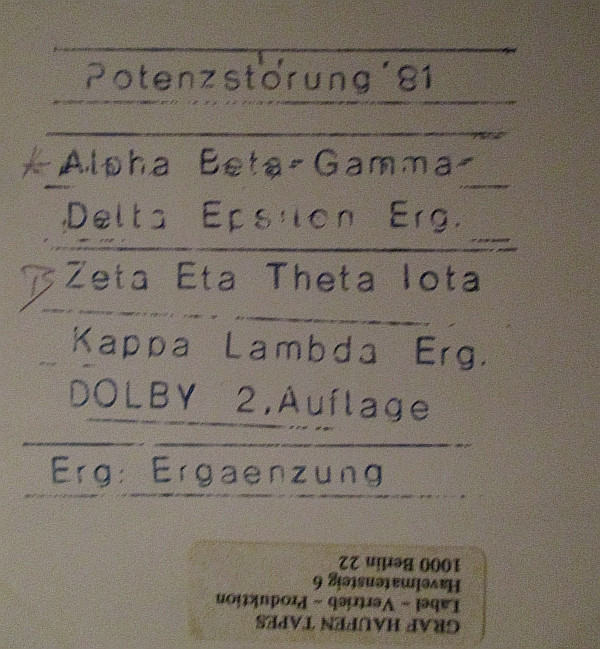 Potenzstörung '81
Alpha Beta-Gamma-
Delta Epsilon Erg.
Zeta Eta Theta Iota
Kappa Lambda Erg.
DOLBY 2.Auflage
Erg: Ergaenzung
GRAF HAUFEN TAPES
Label - Vertrieb - Produktion
Havelmatensteig 6
1000 Berlin 22